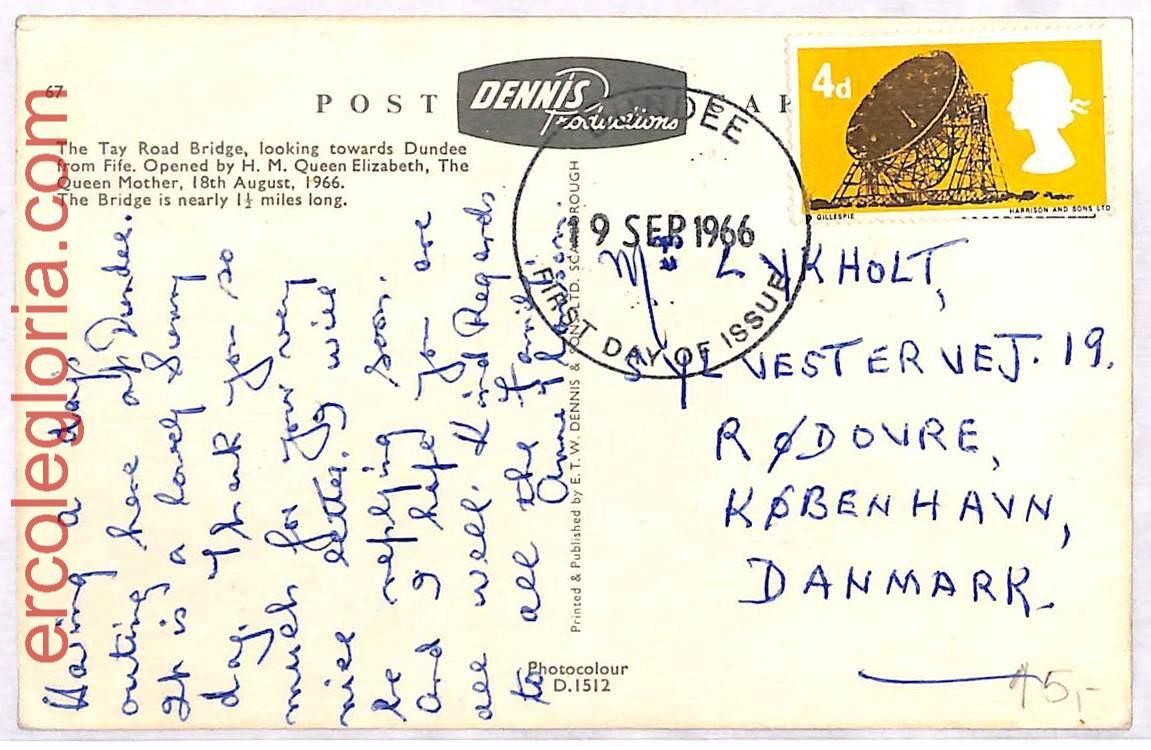 67
POST CARD
DENNIS
Productions
The Tay Road Bridge, looking towards Dundee
from Fife. Opened by H. M. Queen Elizabeth, The
Queen Mother, 18th August, 1966.
The Bridge is nearly 1½ miles long.
Having a day's
outing here at Dundee.
It is a lovely Sunny
day. Thank you so
much for your very
nice letter. I will
be replying soon.
and I hope you are
all well. Kind Regards
to all the Family.
Printed & Published by E. T. W. DENNIS & SONS LTD. SCARBOROUGH
Photocolour
D.1512
DUNDEE
19 SEP 1966
FIRST DAY OF ISSUE
4d
GILLESPIE
HARRISON AND SONS LTD
LYKHOLT,
SYLVESTERVEJ. 19.
RØDOVRE,
KØBENHAVN,
DANMARK.
45,-
ercolegloria.com